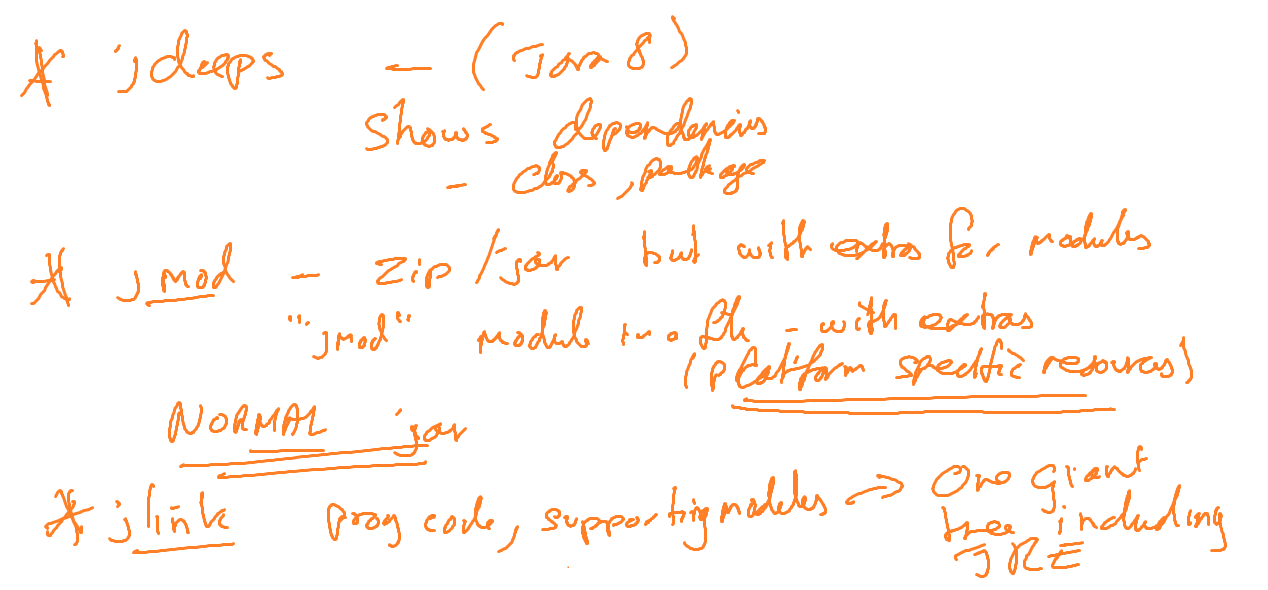 * jdeps ← (Java 8)
shows dependencies
- class, package
* jmod - zip/jar but with extras for modules
"jmod" module in a file - with extras
(platform specific resources)
NORMAL jar
* jlink prog code, supporting modules → One giant
tree including
JRE